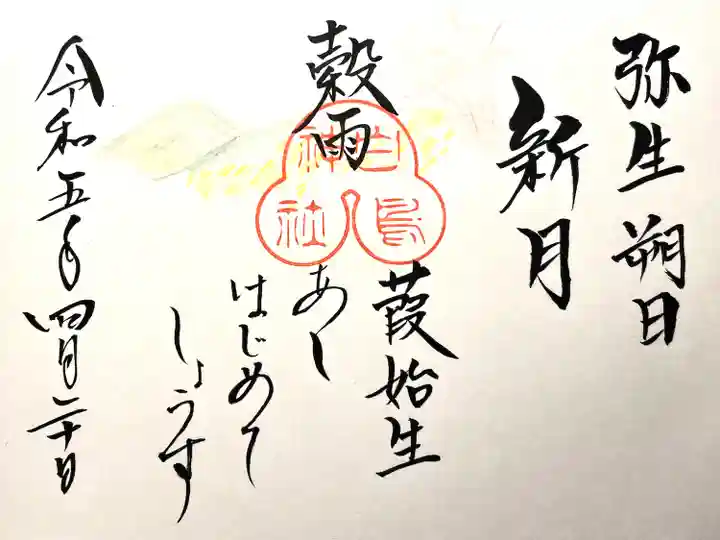 弥生朔日
新月
穀雨
葭始生
あし
はじめて
しょうす
令和五年四月二十日
神社